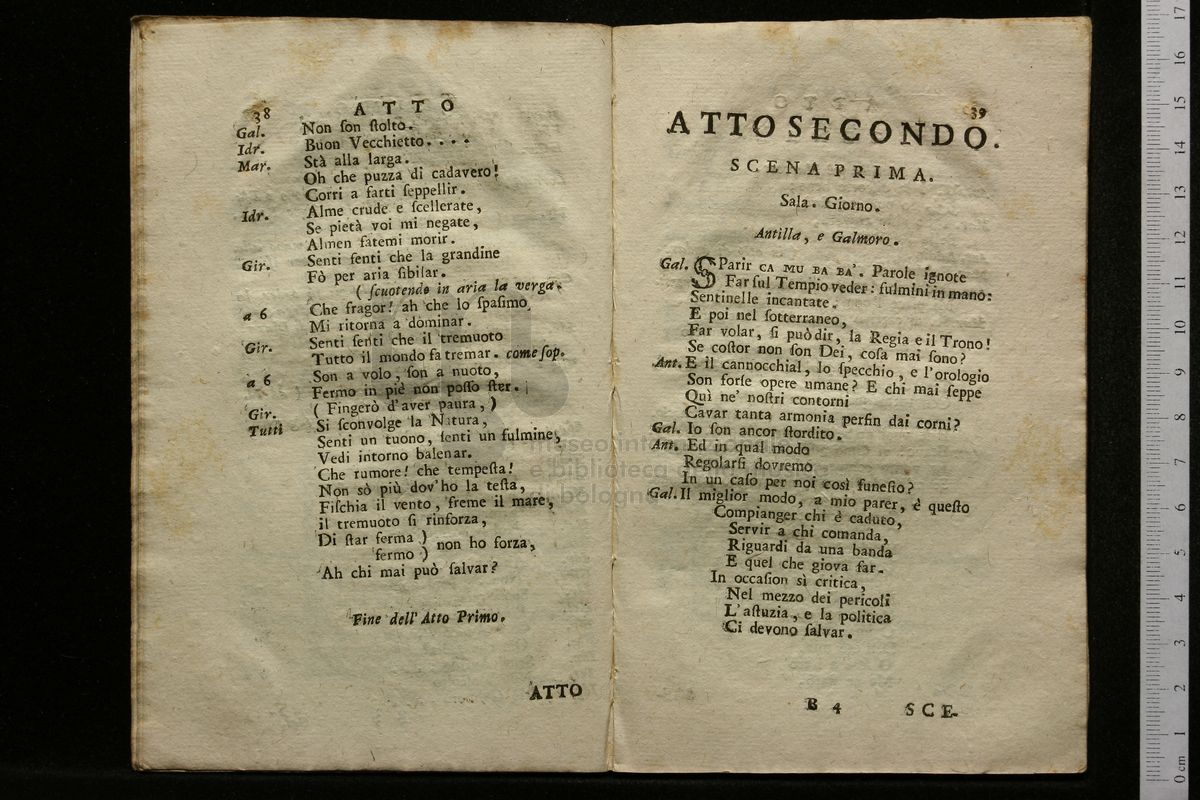 38
ATTO
Gal. Non ſon ſtolto.
Idr. Buon Vecchietto....
Mar. Stà alla larga.
Oh che puzza di cadavero!
Corri a farti ſeppellir.
Idr. Alme crude e ſcellerate,
Se pietà voi mi negate,
Almen fatemi morir.
Gir. Senti ſenti che la grandine
Fò per aria ſibilar.
( ſcuotendo in aria la verga.
a 6 Che fragor! ah che lo ſpaſimo
Mi ritorna a dominar.
Gir. Senti ſenti che il tremuoto
Tutto il mondo fa tremar. come ſop.
a 6 Son a volo, ſon a nuoto,
Fermo in piè non poſſo ſter.
Gir. ( Fingerò d'aver paura, )
Tutti Si ſconvolge la Natura,
Senti un tuono, ſenti un fulmine,
Vedi intorno balenar.
Che rumore! che tempeſta!
Non sò più dov'ho la teſta,
Fiſchia il vento, freme il mare,
il tremuoto ſi rinforza,
Di ſtar ferma )
fermo ) non ho forza,
Ah chi mai può ſalvar?
Fine dell' Atto Primo.
ATTO
39
ATTO SECONDO.
SCENA PRIMA.
Sala. Giorno.
Antilla, e Galmoro.
Gal. SParir CA MU BA BA'. Parole ignote
Far ſul Tempio veder: fulmini in mano:
Sentinelle incantate.
E poi nel ſotterraneo,
Far volar, ſi può dir, la Regia e il Trono!
Se coſtor non ſon Dei, coſa mai ſono?
Ant. E il cannocchial, lo ſpecchio, e l'orologio
Son forſe opere umane? E chi mai ſeppe
Quì ne' noſtri contorni
Cavar tanta armonia perfin dai corni?
Gal. Io ſon ancor ſtordito.
Ant. Ed in qual modo
Regolarſi dovremo
In un caſo per noi così funeſto?
Gal. Il miglior modo, a mio parer, è queſto
Compianger chi è caduto,
Servir a chi comanda,
Riguardi da una banda
E quel che giova far.
In occaſion sì critica,
Nel mezzo dei pericoli
L'aſtuzia, e la politica
Ci devono ſalvar.
B 4
SCE-
museo internazionale
e biblioteca della musica
di bologna